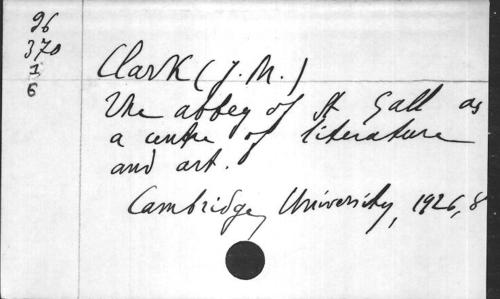 96
370
1
6
Clark (J. M.)
The abbey of St Gall as
a centre of literature
and art.
Cambridge, University, 1926, 8